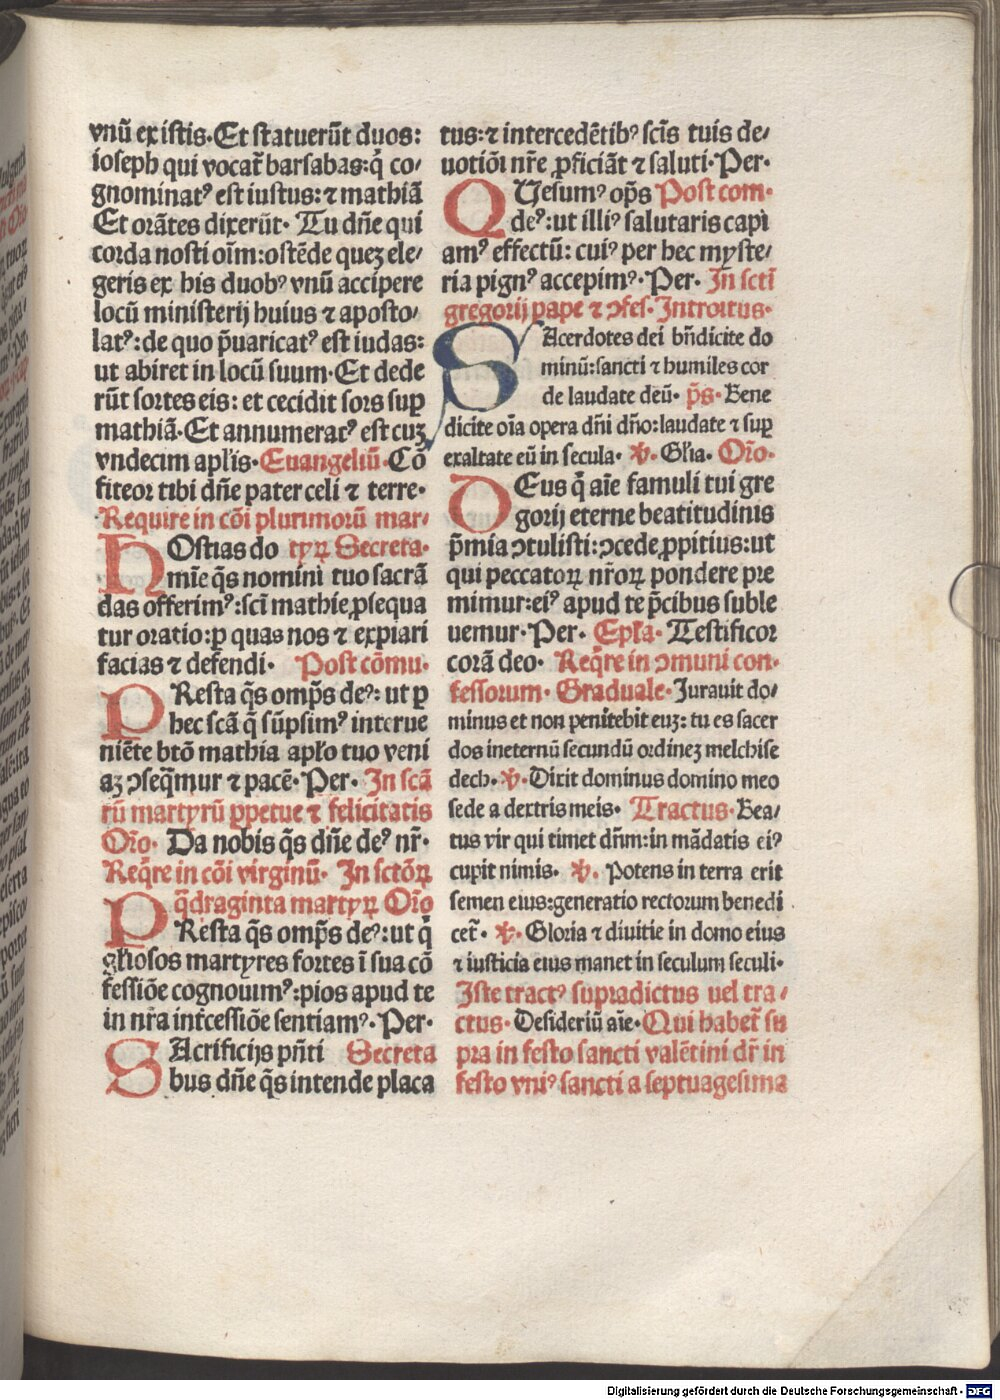 vnū ex istis·Et statuerūt duos:
ioseph qui vocat̄ barsabas:q̄ co⸗
gnominatꝰ est iustus:⁊ mathiā
Et orātes dixerūt· Tu dn̄e qui
corda nosti oīm:ostēde queʒ ele⸗
geris ex his duobꝰ vnū accipere
locū ministerij huius ⁊ aposto⸗
latꝰ:de quo p̄uaricatꝰ est iudas:
ut abiret in locū suum·Et dede
rūt sortes eis: et cecidit sors suꝑ
mathiā·Et annumeratꝰ est cuʒ
vndecim apl̄is·Euangeliū·Cō
fiteor tibi dn̄e pater celi ⁊ terre·
Require in cōi plurimorū mar⸗
HOstias do tyꝝ Secreta·
mīe q̄s nomini tuo sacrā
das offerimꝰ:sc̄i mathie ꝓsequa
tur oratio:ꝑ quas nos ⁊ expiari
facias ⁊ defendi· Post cōmu·
PResta q̄s omp̄s deꝰ: ut ꝑ
hec scā q̄ sūpsimꝰ interue
niēte btō mathia apl̄o tuo veni
aʒ ɔseq̄mur ⁊ pacē·Per· In scā
rū martyrū ꝑpetue ⁊ felicitatis
Or̄o· Da nobis q̄s dn̄e deꝰ nr̄·
Req̄re in cōi virginū· In sctōꝝ
q̄draginta martyꝝ Or̄o
PResta q̄s omp̄s deꝰ:ut q̄
gl̄iosos martyres fortes ī sua cō
fessiōe cognouimꝰ:pios apud te
in nr̄a int̄cessiōe sentiamꝰ·Per·
SAcrificijs pn̄ti Secreta
bus dn̄e q̄s intende placa
tus:⁊ intercedētibꝰ sc̄is tuis de⸗
uotiōi nr̄e ꝓficiāt ⁊ saluti·Per·
QUesumꝰ op̄s Post com·
deꝰ:ut illiꝰ salutaris capi
amꝰ effectū: cuiꝰ per hec myste⸗
ria pignꝰ accepimꝰ·Per· In scti
gregorij pape ⁊ ɔfes· Introitus·
SAcerdotes dei bn̄dicite do
minū:sancti ⁊ humiles cor
de laudate deū· p̄s· Bene
dicite oīa opera dn̄i dn̄o:laudate ⁊ suꝑ
exaltate eū in secula· ℣· Gl̄ia· Or̄o·
DEus q̄ aīe famuli tui gre
gorij eterne beatitudinis
p̄mia ɔtulisti:ɔcede ꝓpitius:ut
qui peccatoꝝ nr̄oꝝ pondere pre
mimur:eiꝰ apud te p̄cibus suble
uemur·Per· Epl̄a· Testificor
corā deo· Req̄re in ɔmuni con·
fessorum· Graduale·Jurauit do⸗
minus et non penitebit euʒ: tu es sacer
dos ineternū secundū ordineʒ melchise
dech·℣·Dixit dominus domino meo
sede a dextris meis· Tractus·Bea⸗
tus vir qui timet dn̄m:in mādatis eiꝰ
cupit nimis· ℣· Potens in terra erit
semen eius:generatio rectorum benedi
cet̄· ℣· Gloria ⁊ diuitie in domo eius
⁊ iusticia eius manet in seculum seculi·
Iste tractꝰ supradictus uel tra⸗
ctus· Desideriū aīe·Qui habet̄ su
pra in festo sancti valētini dr̄ in
festo vniꝰ sancti a septuagesima
Digitalisierung gefördert durch die Deutsche Forschungsgemeinschaft · DFG